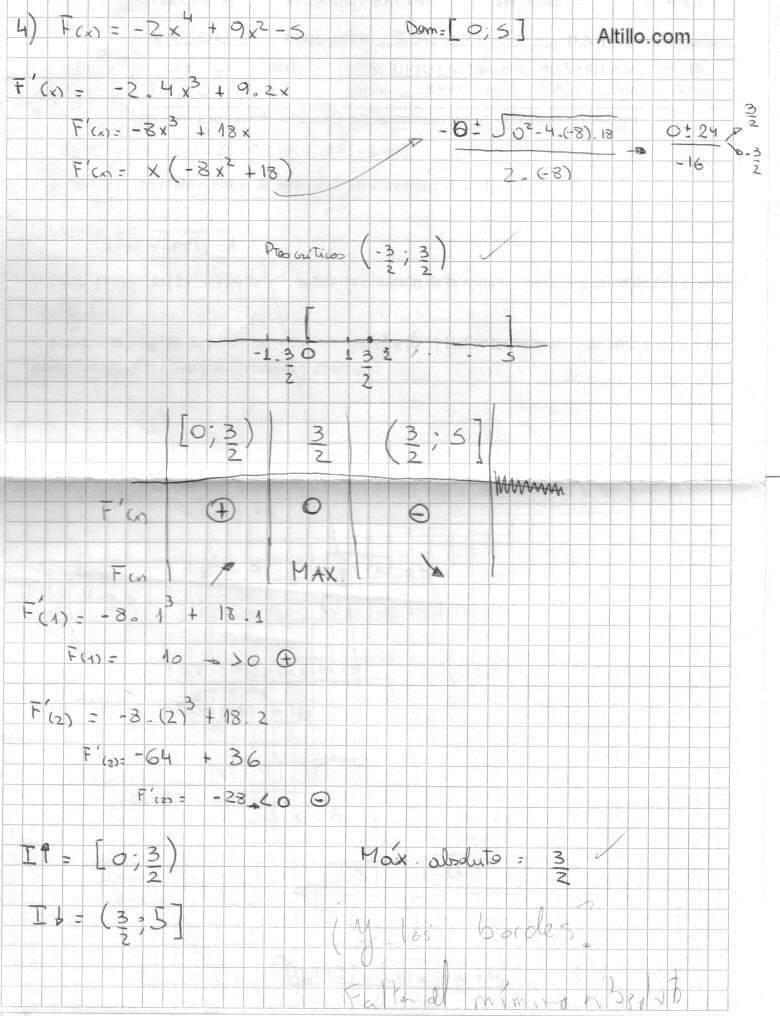 4) F(x) = -2x⁴ + 9x² - 5 Dom = [0; 5] Altillo.com
F'(x) = -2.4x³ + 9.2x
F'(x) = -8x³ + 18x
F'(x) = x(-8x² + 18) → (-0 ± √(0² - 4.(-8).18)) / (2.(-8)) → (0 ± 24) / -16 → 3/2 → -3/2
Ptos críticos (-3/2; 3/2) ✓
-1. 3/2 0 1 3/2 2 .. . 5
[0; 3/2) 3/2 (3/2; 5]
F'(x) ⊕ 0 ⊖
F(x) ↗ MAX ↘
F'(1) = -8. 1³ + 18.1
F(1) = 10 → >0 ⊕
F'(2) = -8.(2)³ + 18.2
F'(2) = -64 + 36
F'(2) = -28 <0 ⊖
I↑ = [0; 3/2) Máx. absoluto = 3/2 ✓
I↓ = (3/2; 5] ¿Y los bordes?
Falta el mínimo absoluto